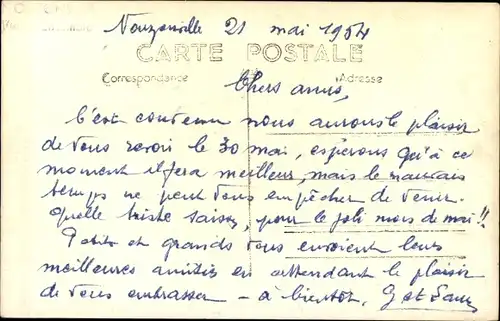 Nouzonville 21 mai 1954
CARTE POSTALE
Correspondance Adresse
Chers amis,
C'est convenu nous aurons le plaisir
de vous revoir le 30 mai, espérons qu'à ce
moment il fera meilleur, mais le mauvais
temps ne peut vous empêcher de venir.
Quelle triste saison, pour le joli mois de mai !!
Petits et grands vous envoient leurs
meilleures amitiés en attendant le plaisir
de vous embrasser – à bientôt. G et